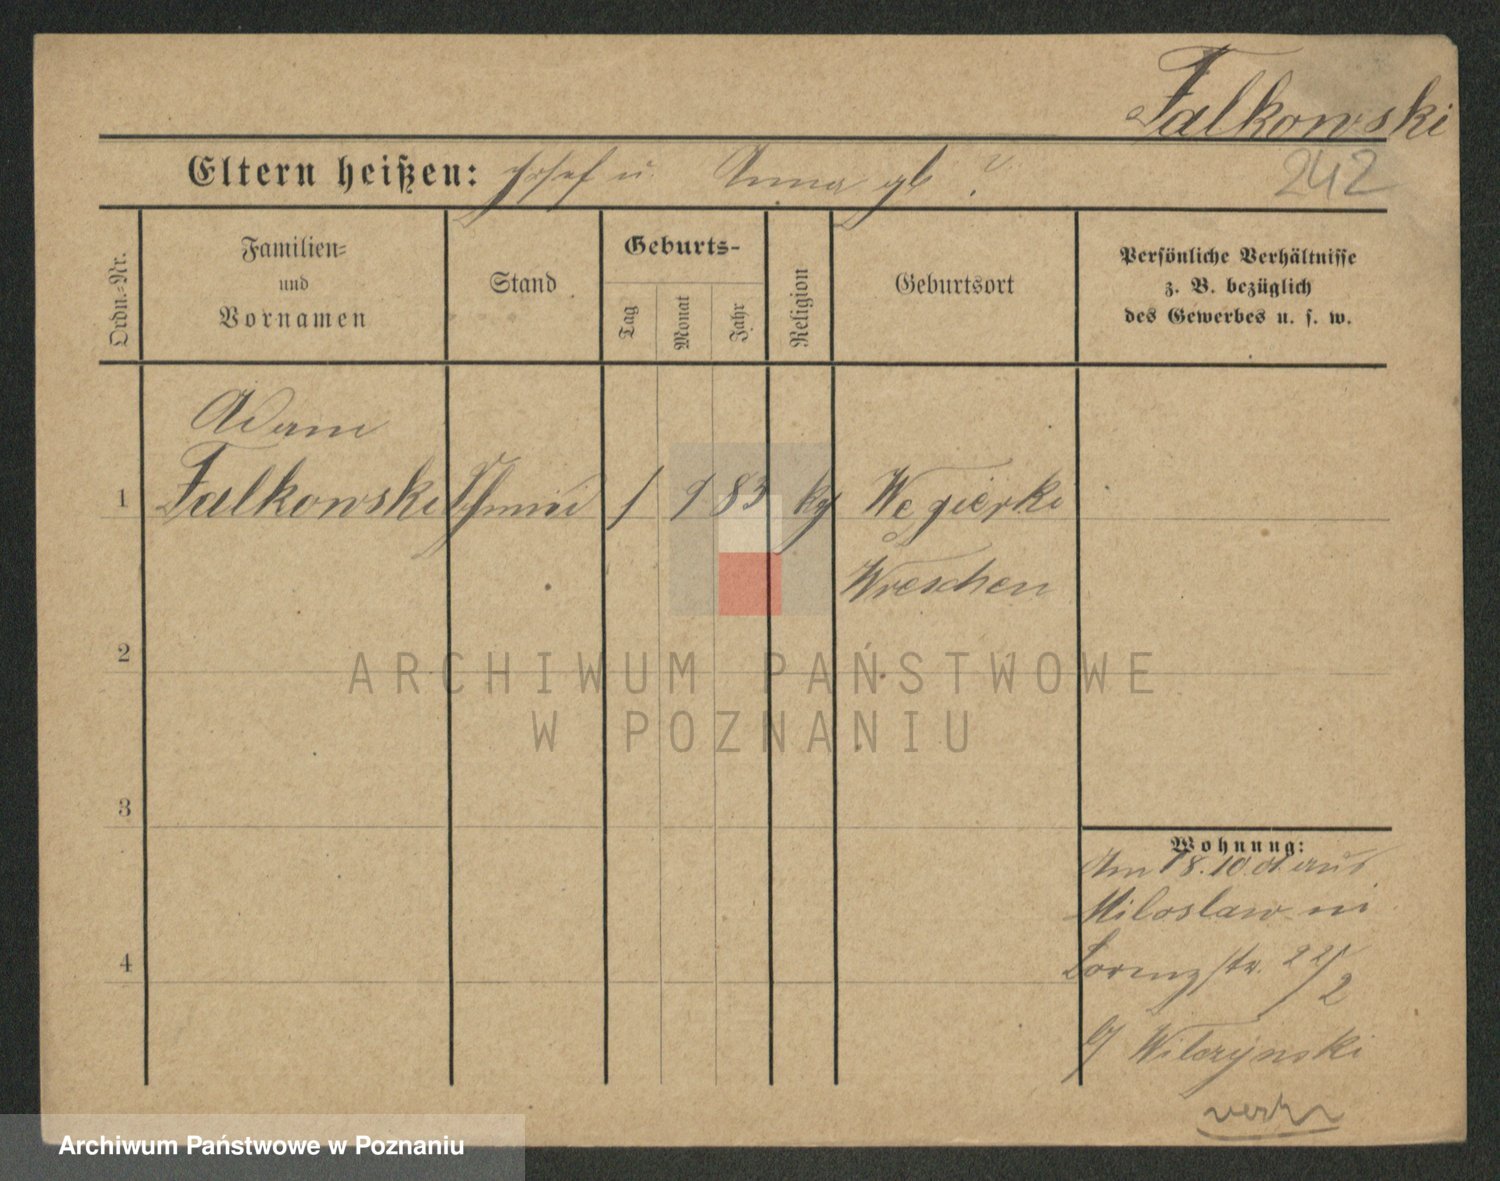 Falkowski
242
Eltern heißen: Josef u. Anna gb ?
Ordn.-Nr.
Familien-
und
Vornamen
Stand
Geburts-
Tag
Monat
Jahr
Religion
Geburtsort
Persönliche Verhältnisse
z. B. bezüglich
des Gewerbes u. s. w.
Adam
1 Falkowski 1 9 83 Węgierki
Wreschen
2
3
4
ARCHIWUM PAŃSTWOWE
W POZNANIU
Wohnung:
Am 18.10. aus
Miloslaw
Lorenzstr. 22/2
b/ Wilczynski
Archiwum Państwowe w Poznaniu